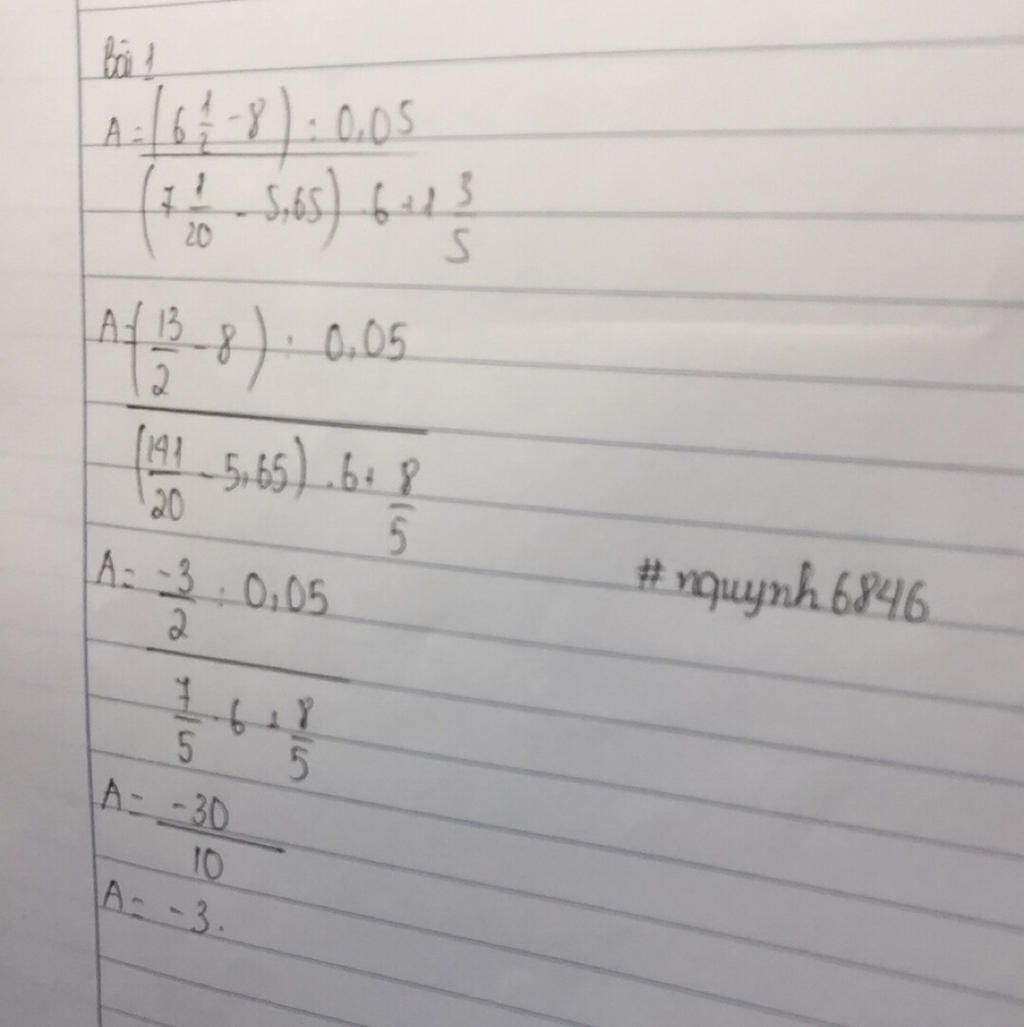 Bài 1
A = (6 1/2 - 8) : 0,05
(7 1/20 - 5,65) . 6 + 1 3/5
A = (13/2 - 8) : 0,05
(141/20 - 5,65) . 6 + 8/5
A = -3/2 : 0,05
#nquynh6846
7/5 . 6 + 8/5
A = -30
10
A = -3.